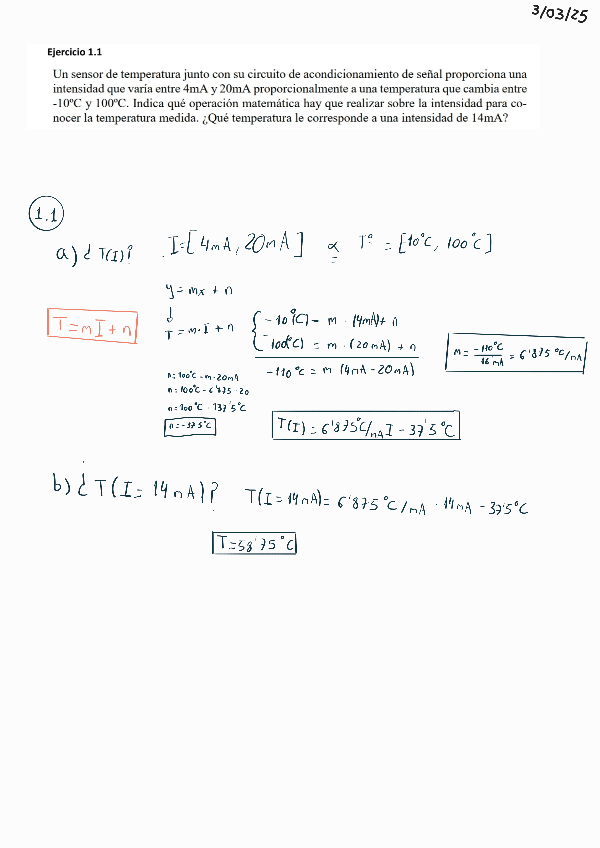 3/03/25
Ejercicio 1.1
Un sensor de temperatura junto con su circuito de acondicionamiento de señal proporciona una
intensidad que varía entre 4mA y 20mA proporcionalmente a una temperatura que cambia entre
-10ºC y 100ºC. Indica qué operación matemática hay que realizar sobre la intensidad para co-
nocer la temperatura medida. ¿Qué temperatura le corresponde a una intensidad de 14mA?
1.1
a) ¿T(I)? I=[4mA, 20mA] ∝ Tº = [10ºC, 100ºC]
y = mx + n
↓
T = mI + n
T = m·I + n
-10(ºC) = m · (4mA) + n
100(ºC) = m · (20mA) + n
-110ºC = m (4mA - 20mA)
m = -110ºC / 16mA = 6'875 ºC/mA
n = 100ºC - m·20mA
n = 100ºC - 6'875·20
n = 100ºC - 137'5ºC
n = -37'5ºC
T(I) = 6'875ºC/mA I - 37'5ºC
b) ¿T(I = 14mA)? T(I = 14mA) = 6'875 ºC/mA · 14mA - 37'5ºC
T = 58'75ºC